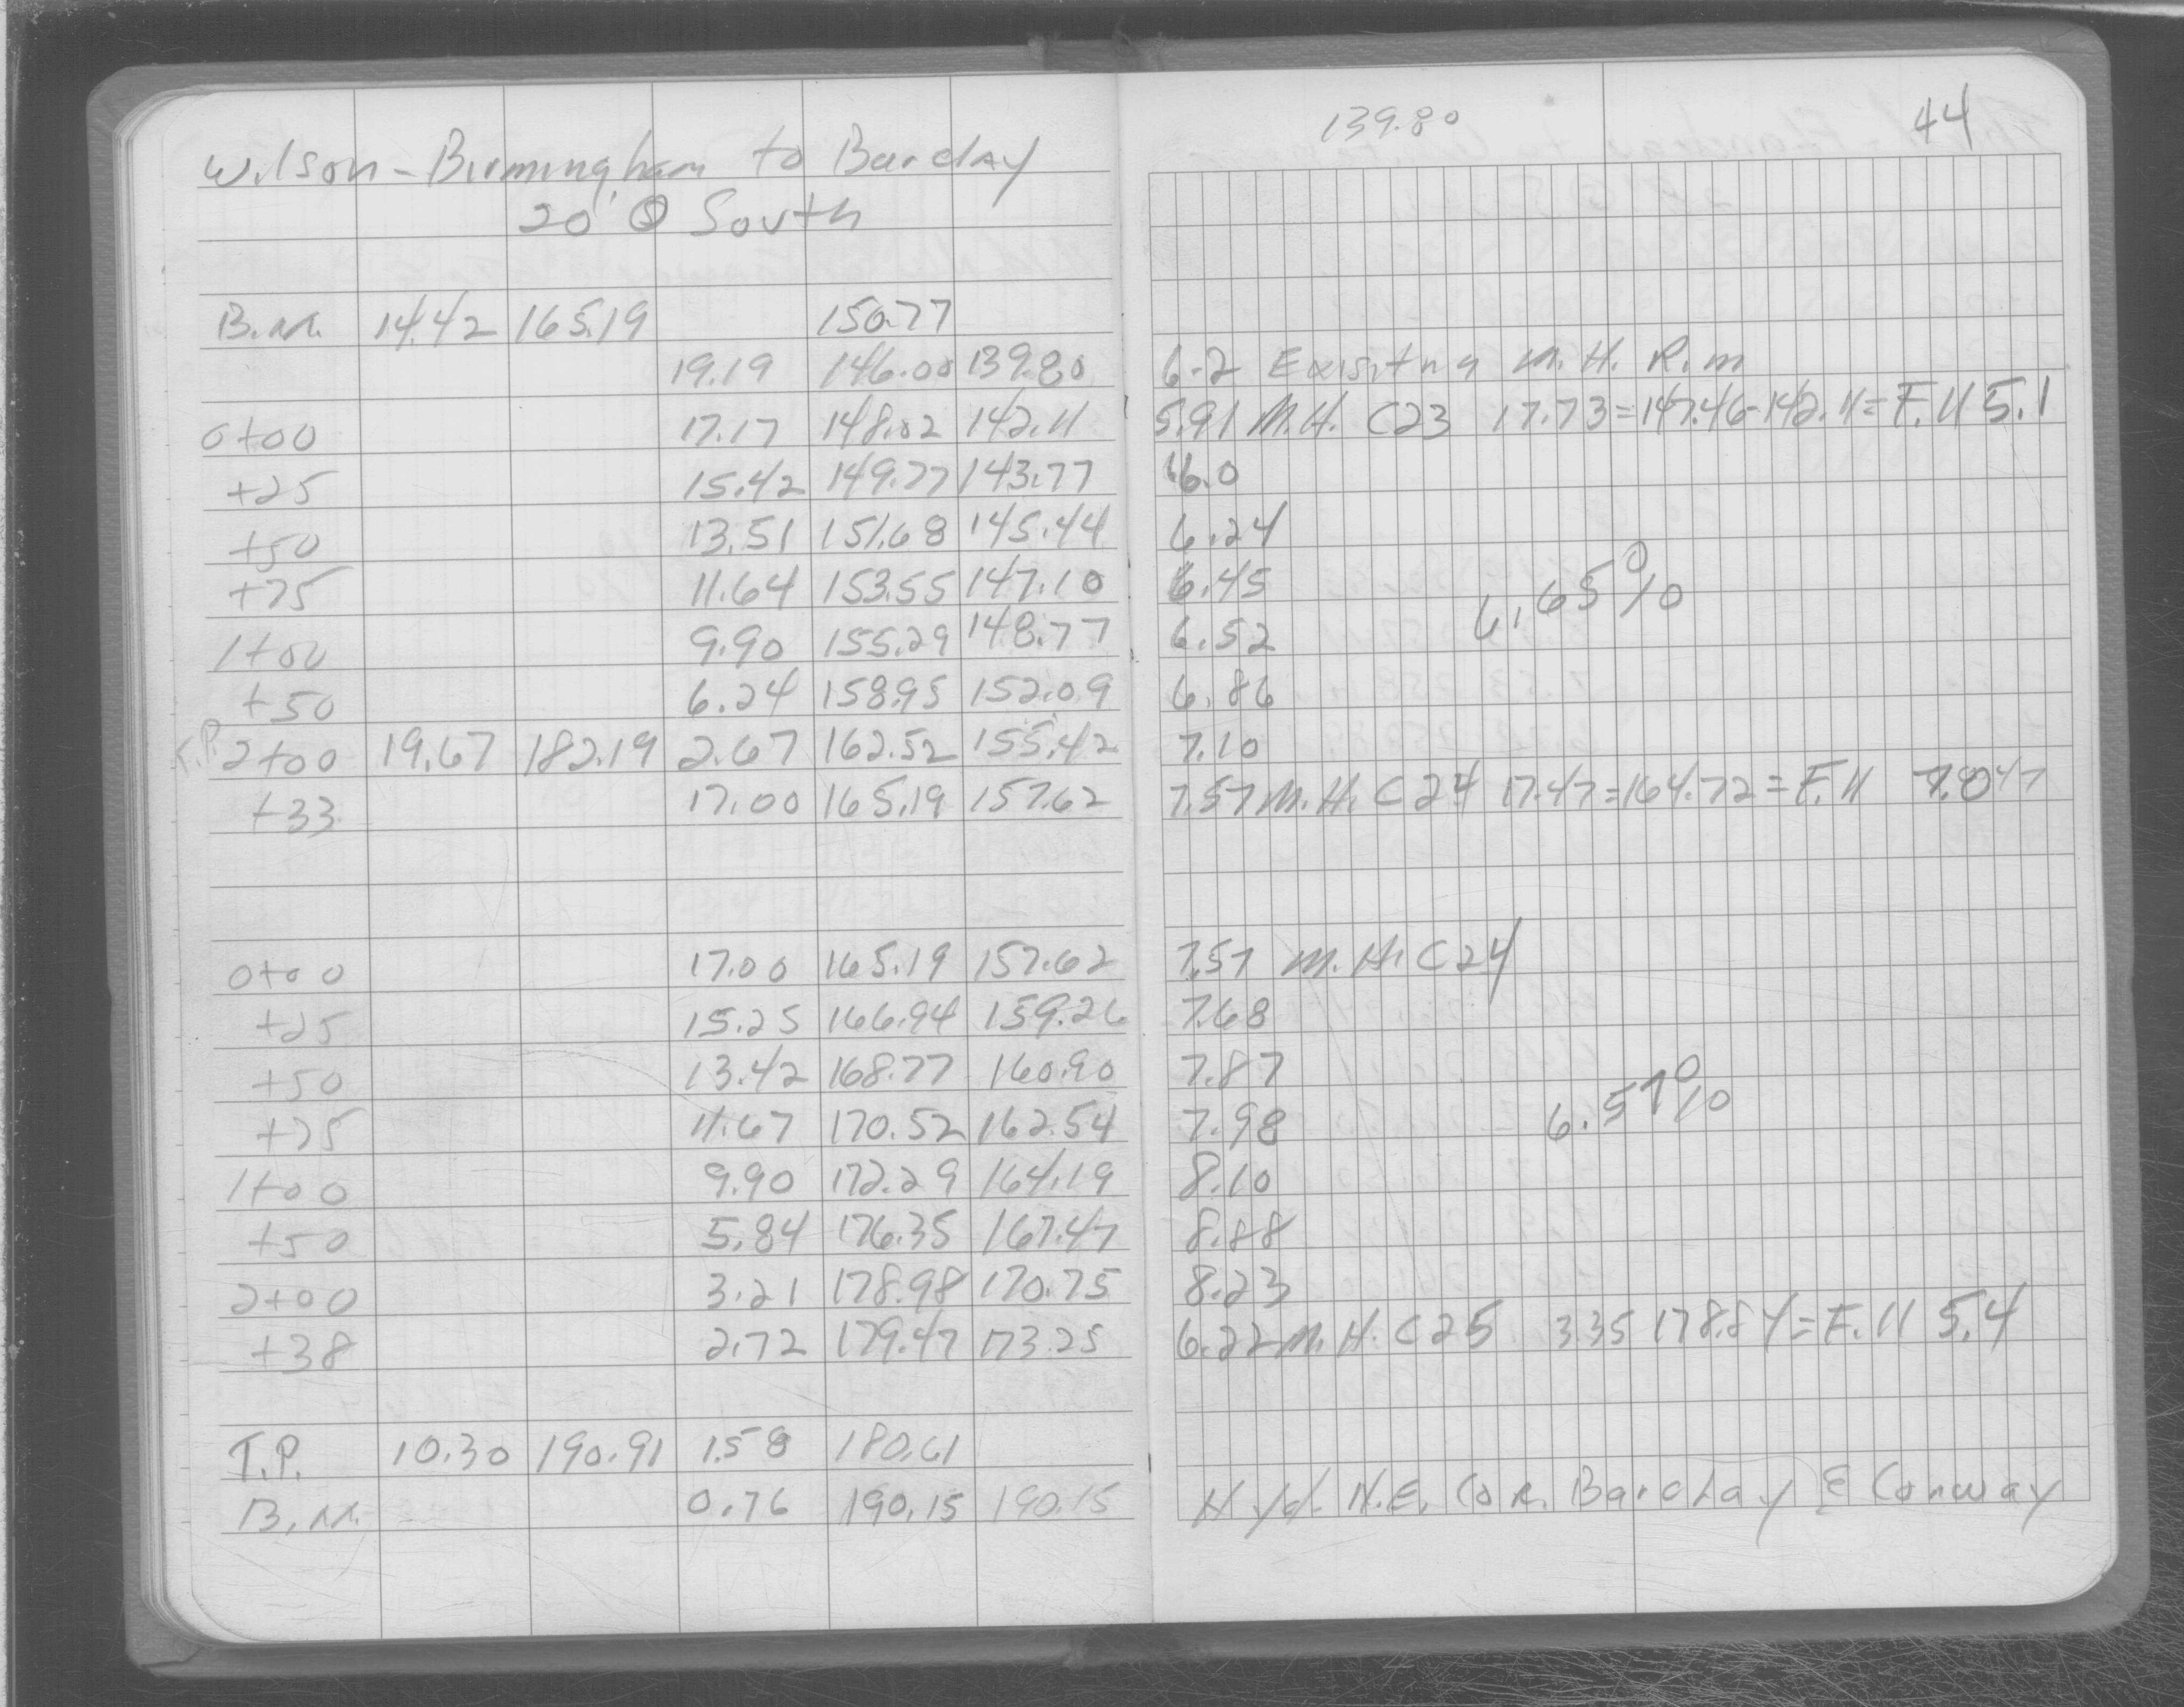 139.80 44
Wilson - Birmingham to Barclay
20' @ South
B.M. 14.42 165.19 150.77
19.19 146.00 139.80 6.2 Exisitng M.H. Rim
0+00 17.17 148.02 142.11 5.91 M.H. C23 17.73=147.46-142.11= F.11 5.1
+25 15.42 149.77 143.77 6.0
+50 13.51 151.68 145.44 6.24
+75 11.64 153.55 147.10 6.45 6.65%
1+00 9.90 155.29 148.77 6.52
+50 6.24 158.95 152.09 6.86
T.P. 2+00 19.67 182.19 2.67 162.52 155.42 7.10
+33 17.00 165.19 157.62 7.57 M.H. C24 17.47=164.72=F.11
0+00 17.00 165.19 157.62 7.57 M.H. C24
+25 15.25 166.94 159.26 7.68
+50 13.42 168.77 160.90 7.87
+75 11.67 170.52 162.54 7.98 6.57%
1+00 9.90 172.29 164.19 8.10
+50 5.84 176.35 167.47 8.88
2+00 3.21 178.98 170.75 8.23
+38 2.72 179.47 173.25 6.22 M.H. C25 3.35 178.84=F.11 5.4
T.P. 10.30 190.91 1.58 180.61
B.M. 0.76 190.15 190.15 Hyd. N.E. Cor. Barclay & Conway